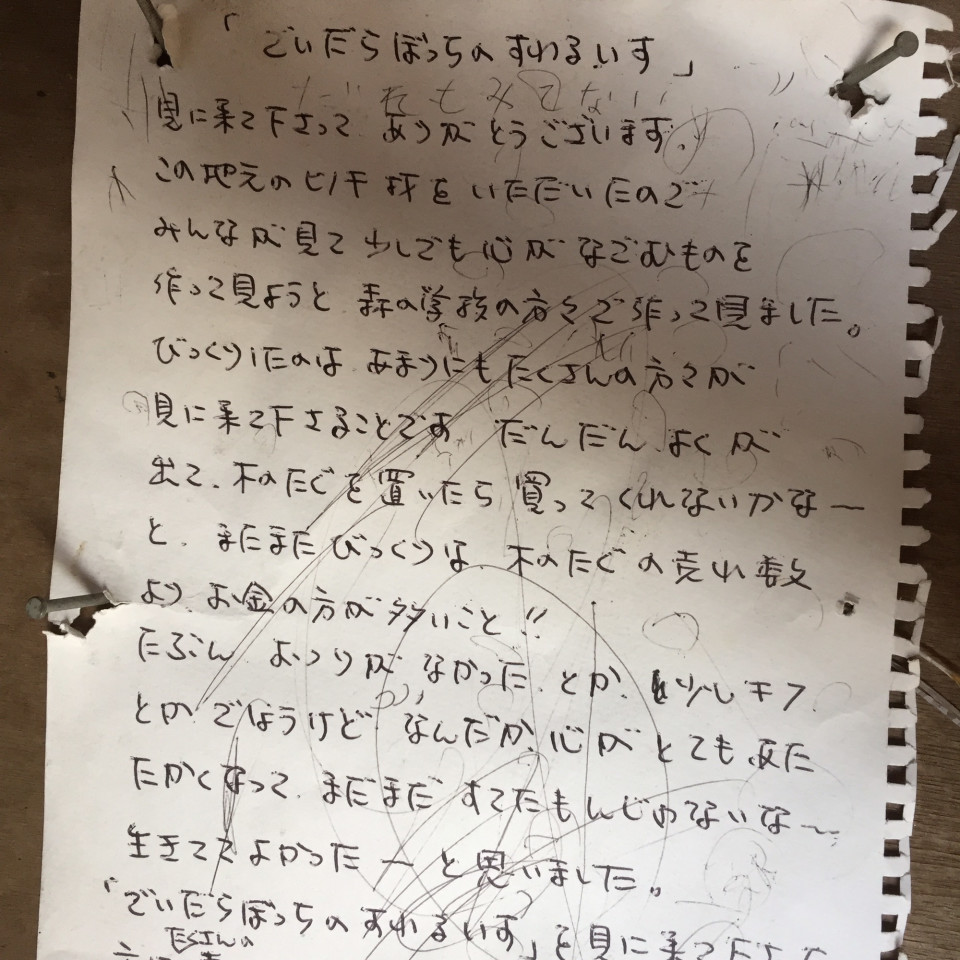 「でいだらぼっちのすわるいす」
見に来て下さって ありがとうございます。
この地元のヒノキ材を いただいたので
みんなが見て 少しでも心が なごむものを
作って見ようと 森の学校の方々で作って見ました。
びっくりしたのは あまりにもたくさんの方々が
見に来て下さることです だんだん よくが
出て、木のたぐを置いたら 買ってくれないかな〜
と、またまた びっくりは、木のたぐの売れ数
より、お金の方が多いこと!!
たぶん おつりが なかった、とか、少しキフ
とか でしょうけど なんだか、心が とてもあた
たかくなって、まだまだ すてたもんじゃないな〜
生きててよかった〜 と思いました。
「でいだらぼっちのすわるいす」を見に来て下さった
たくさんの